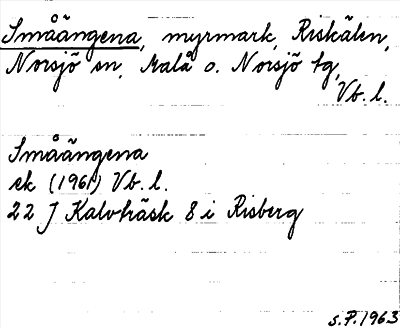 Småängena, myrmark, Riskälen,
Norsjö sn, Malå o. Norsjö tg,
Vb. l.
Småängena
ek (1961) Vb. l.
22 J Kalvträsk 8 i Risberg
S.P. 1963